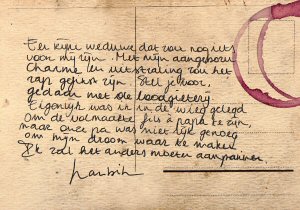 Een rijke weduwe dat zou nog iets
voor mij zijn. Met mijn aangeboren
charme en uitstraling zou het
rap gepiept zijn. Stel je voor,
gedaan met de loodgieterij.
Eigenlijk was ik in de wieg gelegd
om de volmaakte fils à papa te zijn,
maar onze pa was niet rijk genoeg
om mijn droom waar te maken.
Ik zal het anders moeten aanpakken.